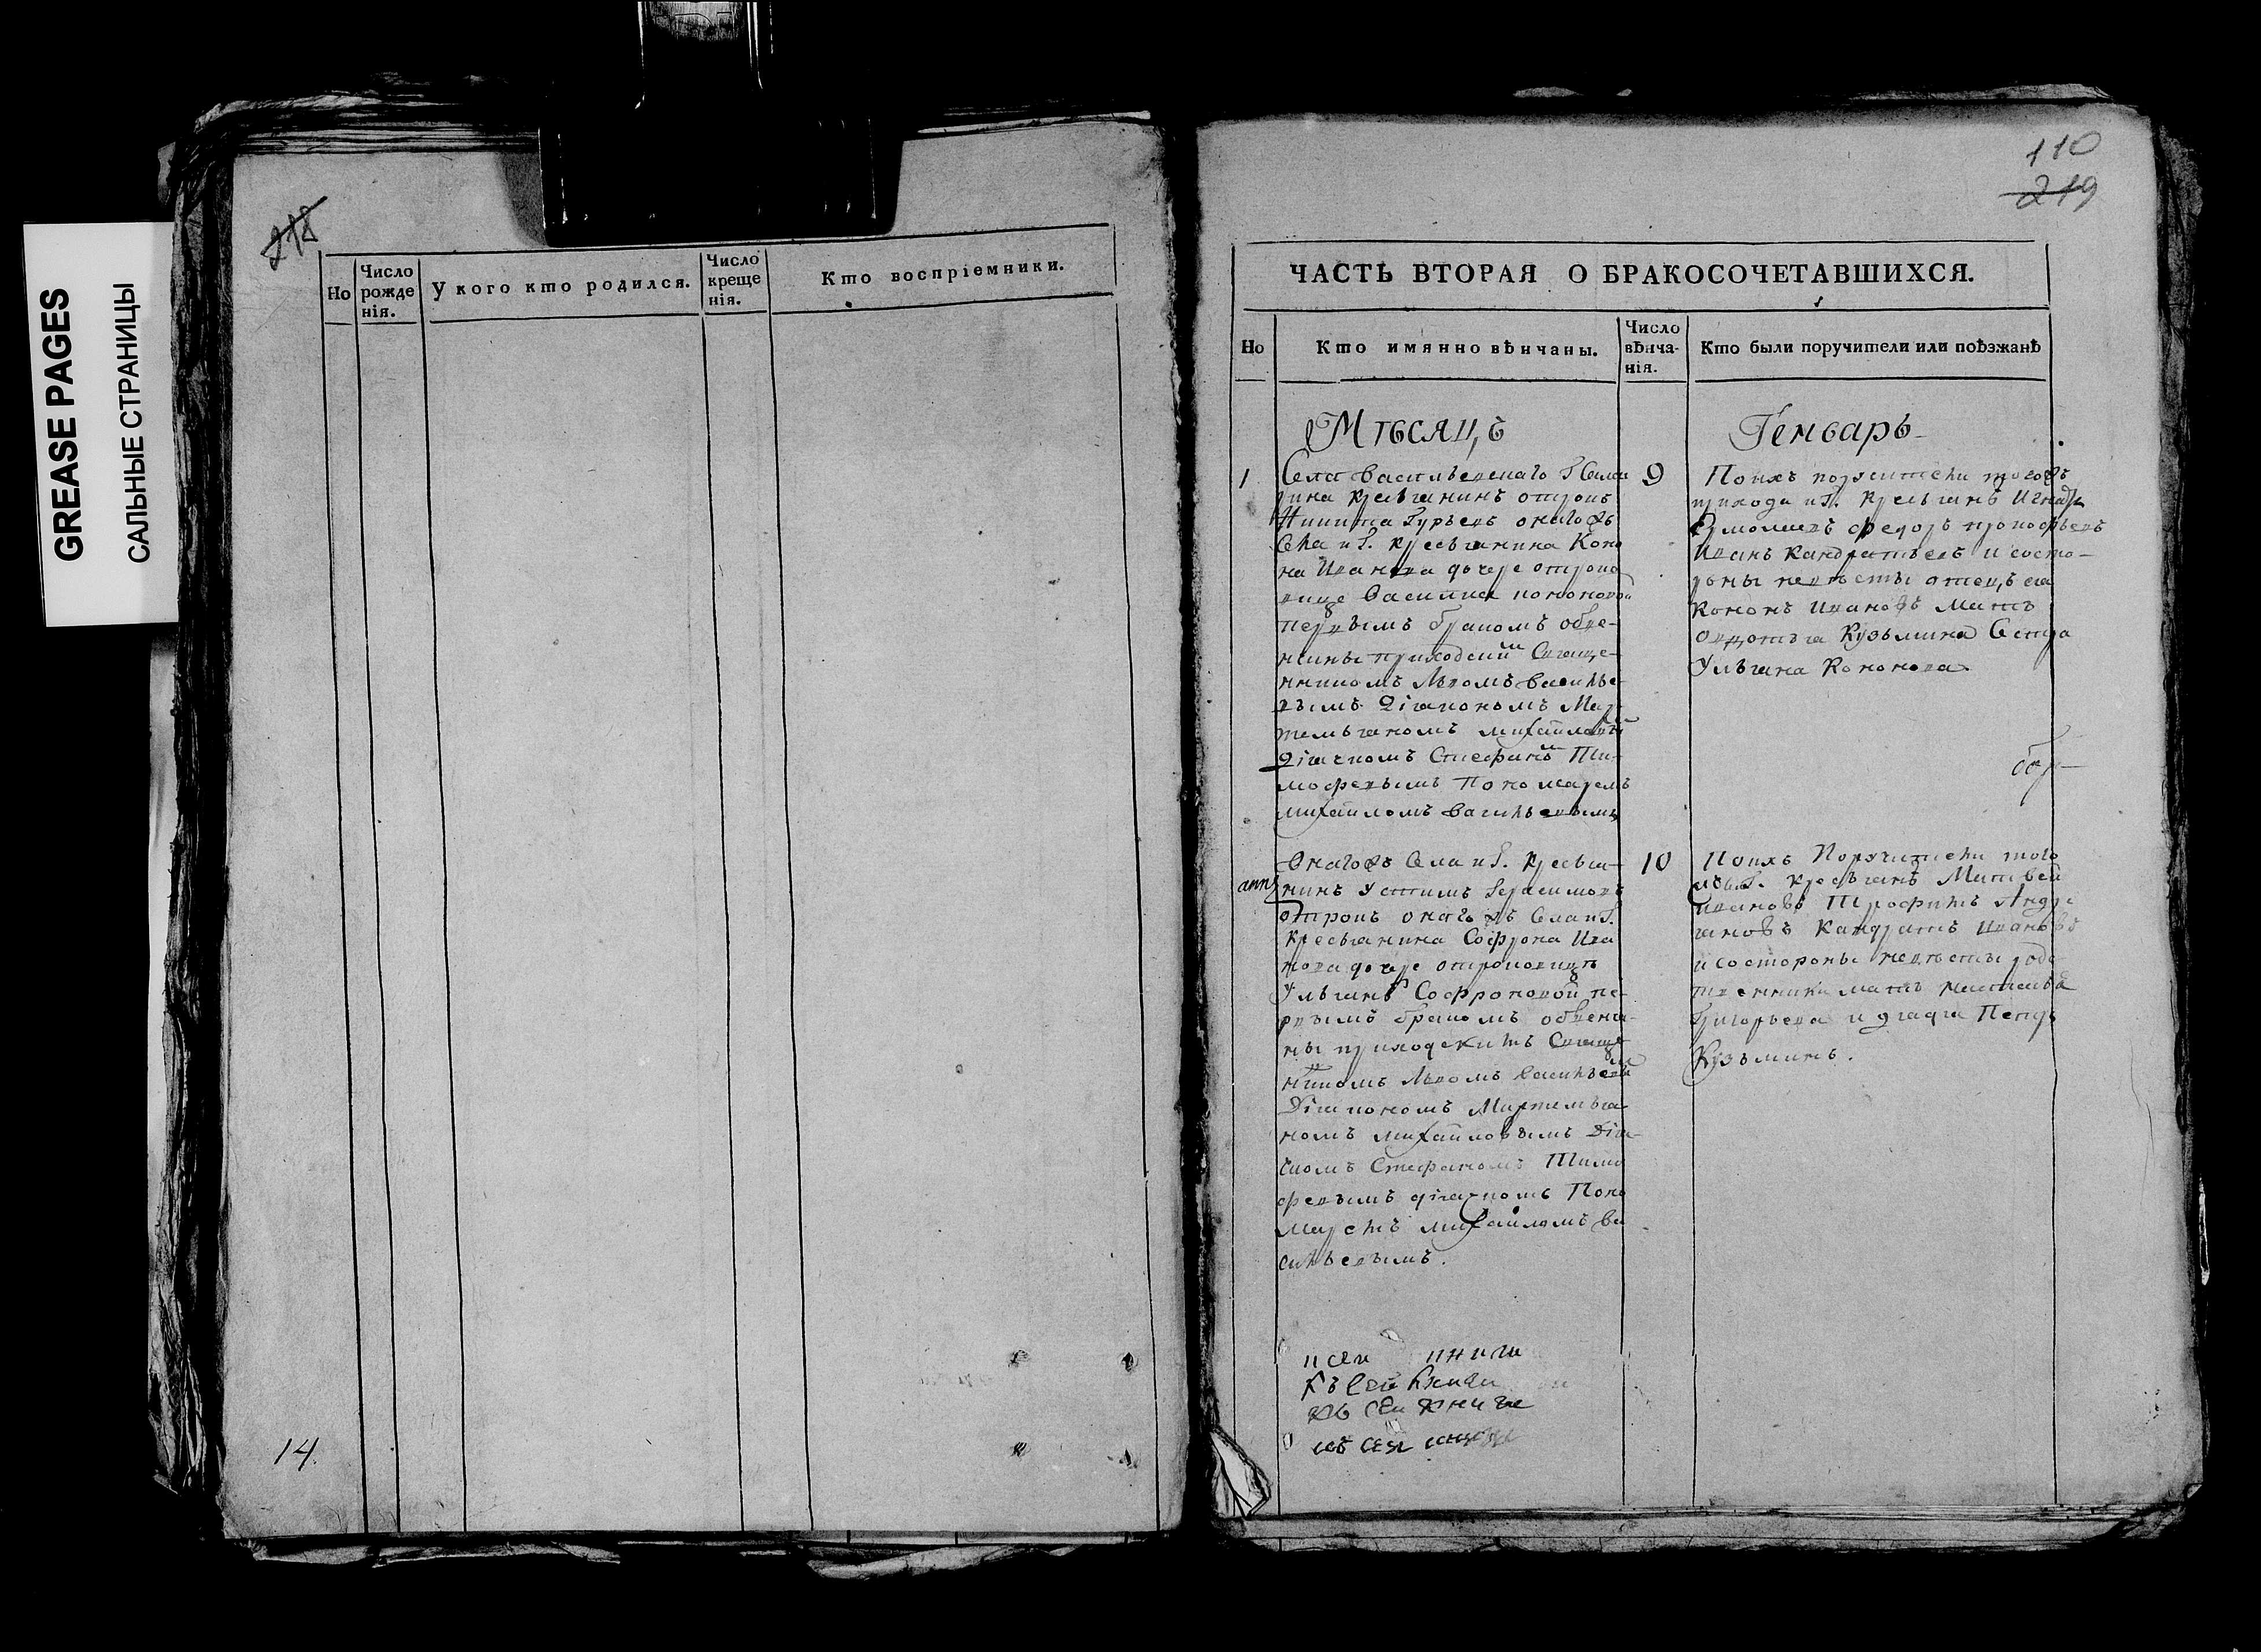 GREASE PAGES
САЛЬНЫЕ СТРАНИЦЫ
218
Но
Число рожде нія.
У кого кто родился.
Число креще нія.
Кто воспріемники.
14.
110
219
ЧАСТЬ ВТОРАЯ О БРАКОСОЧЕТАВШИХСЯ.
Но
Кто имянно вѣнчаны.
Число вѣнча- нія.
Кто были поручители или поѣзжанѣ
Мѣсяцъ
Генварь
1
Села Васильевскаго
крестьянинъ отрокъ
Никита Гурьевъ онагожъ
села крестьянина Коно
на Иванова дочере отроко
вице Василиса Кононовой
первымъ бракомъ обве-
нчаны приходским Свяще-
нникомъ Львомъ Василье-
вымъ Діакономъ Мар-
темьяномъ Михайловым
Діячкомъ Стефаном Ти-
мофевымъ Пономаремъ
Михайломъ Васильевымъ
9
Поихъ поручители тогожъ
прихода крестьянѣ Игнатъ
Ермолаевъ Федоръ Прокофьевъ
Иванъ Кандратьевъ и состо-
роны невѣсты отецъ ея
Кононъ Ивановъ мать
Овдотья Кузьмина Сестра
Ульяна Кононова
Онагожъ Села крестья-
нинъ Устимъ Герасимовъ
отрокъ онагожъ Села
крестьянина Софрона Ива
нова дочере отроковицѣ
Ульянѣ Софроновой пе-
рвымъ бракомъ обвенча-
ны приходскимъ Свяще
нникомъ Львомъ Васильевым
Діакономъ Мартемья-
номъ Михайловымъ Дія-
чкомъ Стефаномъ Тимо
февымъ діячкомъ Поно
маремъ Михайломъ Ва
сильевымъ.
10
Поихъ Поручители того
крестьянѣ Матвей
Ивановъ Трофимъ Андре
яновъ Кандратъ Ивановъ
и состороны невѣсты родс
твенники мать
Григорьева и дядя Петръ
Кузьминъ.
къ сей книги
къ сей книге